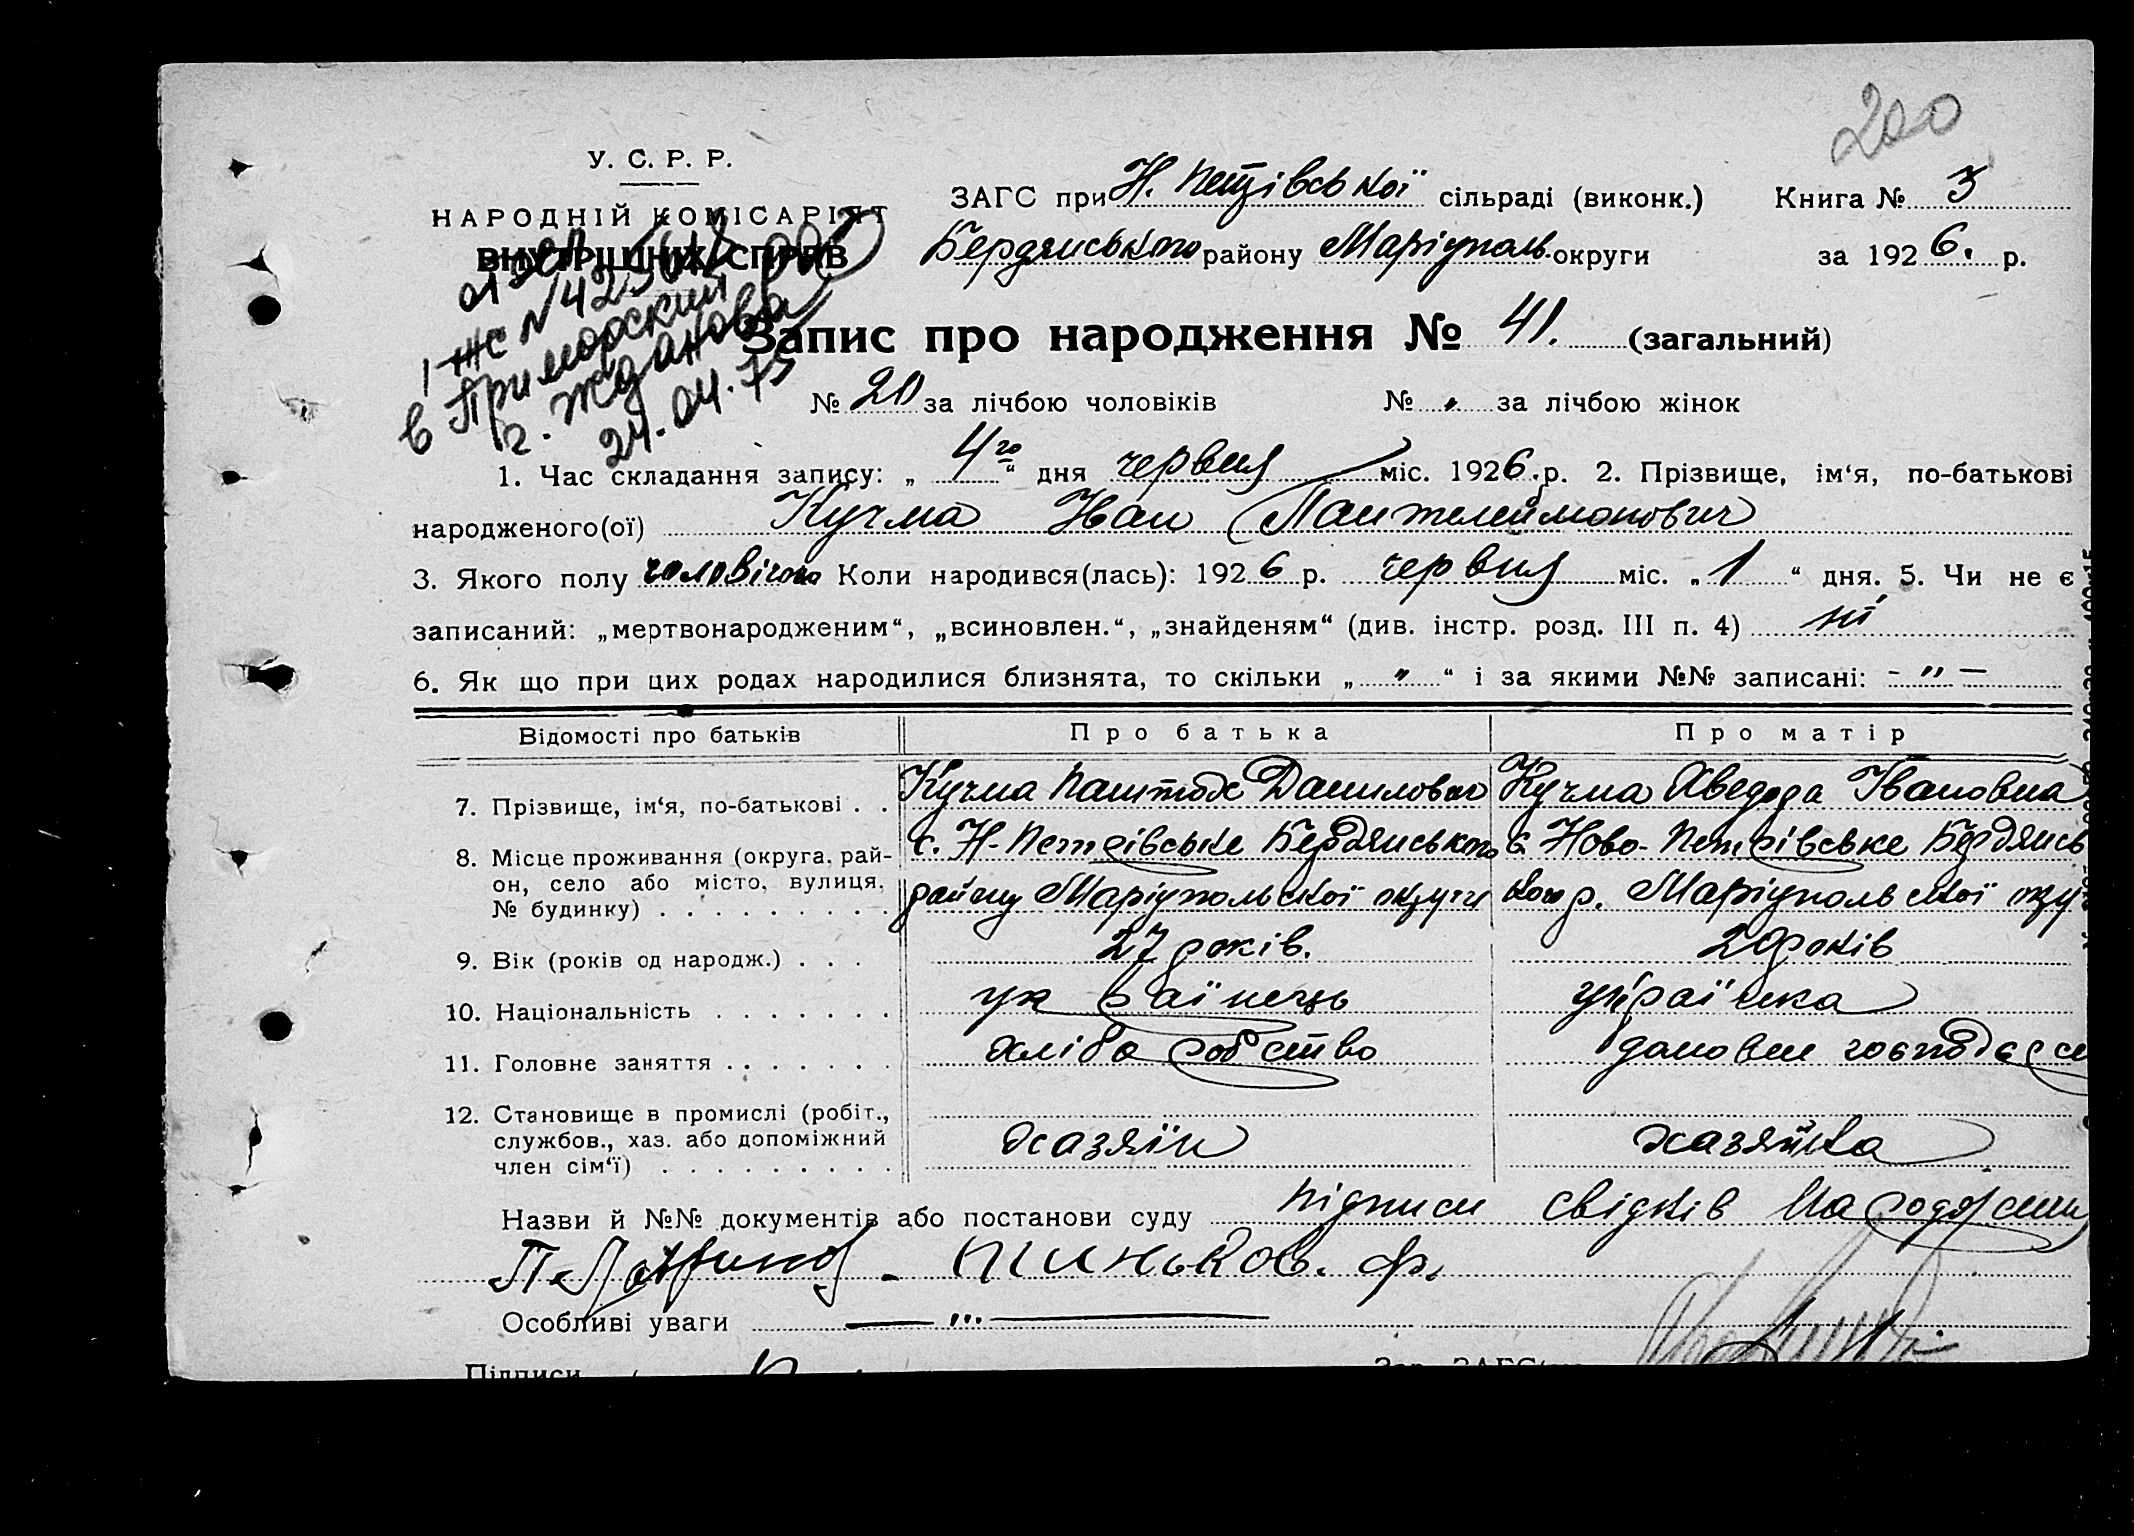 200
У. С. Р. Р.
НАРОДНІЙ КОМІСАРІЯТ
ВНУТРІШНІХ СПРАВ
ЗАГС при Н. Петрівської сільраді (виконк.) Книга № 3
Бердянського району Маріуполь. округи за 1926. р.
І ЖС № 425618
в Приморский
г. Жданова
24.04.75
Запис про народження № 41. (загальний)
№ 20 за лічбою чоловіків № „ за лічбою жінок
1. Час складання запису: „ 4го “ дня червня міс. 1926. р. 2. Прізвище, ім‘я, по-батькові
народженого(ої) Кучма Іван Пантелеймонович
3. Якого полу чоловічого Коли народився(лась): 1926 р. червня міс. „ 1 “ дня. 5. Чи не є
записаний: „мертвонародженим“, „всиновлен.“, „знайденям“ (див. інстр. розд. III п. 4) ні
6. Як що при цих родах народилися близнята, то скільки „ „ “ і за якими №№ записані: - „ -
Відомості про батьків Про батька Про матір
7. Прізвище, ім‘я, по-батькові . . Кучма Данилович Кучма Хведора Івановна
8. Місце проживання (округа, рай-
он, село або місто, вулиця,
№ будинку) . . . . . . . . .
с. Н-Петрівське Бердянського
району Маріупольської округи
с. Ново-Петрівське Бердянсь
кого р. Маріупольської окру
9. Вік (років од народж.) . . . 27 років. 20 років
10. Національність . . . . . . . українець українка
11. Головне заняття . . . . . . . хліборобство домовим
12. Становище в промислі (робіт.,
службов., хаз. або допоміжний
член сім‘ї) . . . . . . . . .
хазяїн хазяйка
Назви й №№ документів або постанови суду підписи свідків
Шиньков. Ф.
Особливі уваги — „ —
Підписи Зав. ЗАГС‘ом